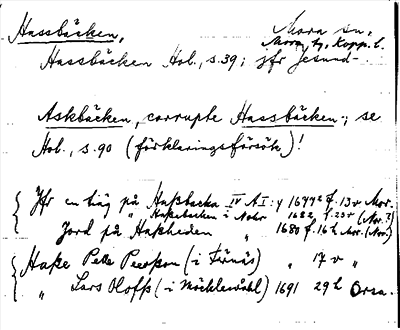 Hassbäcken, Mora sn,
Mora tg, Kopp. l.
Hassbäcken Hol., s.39; jfr Jesund-
Askbäcken, corrupte Hassbäcken; se
Hol., s.90 (förklaringsförsök)!
Jfr en äng på Haßbacka IV A I: y 1677 f. 13v Mor.
" Haßebacken i Nohr 1682 f. 23v (Mor.?)
Jord på Haßheden " 1680 f. 16 h Mor. (Mor.)
Haße Pelle Peerßon (i Färnäs) " 17 v "
" Lars Oloffß (i Möcklewåhl) 1691 29 h Orsa.